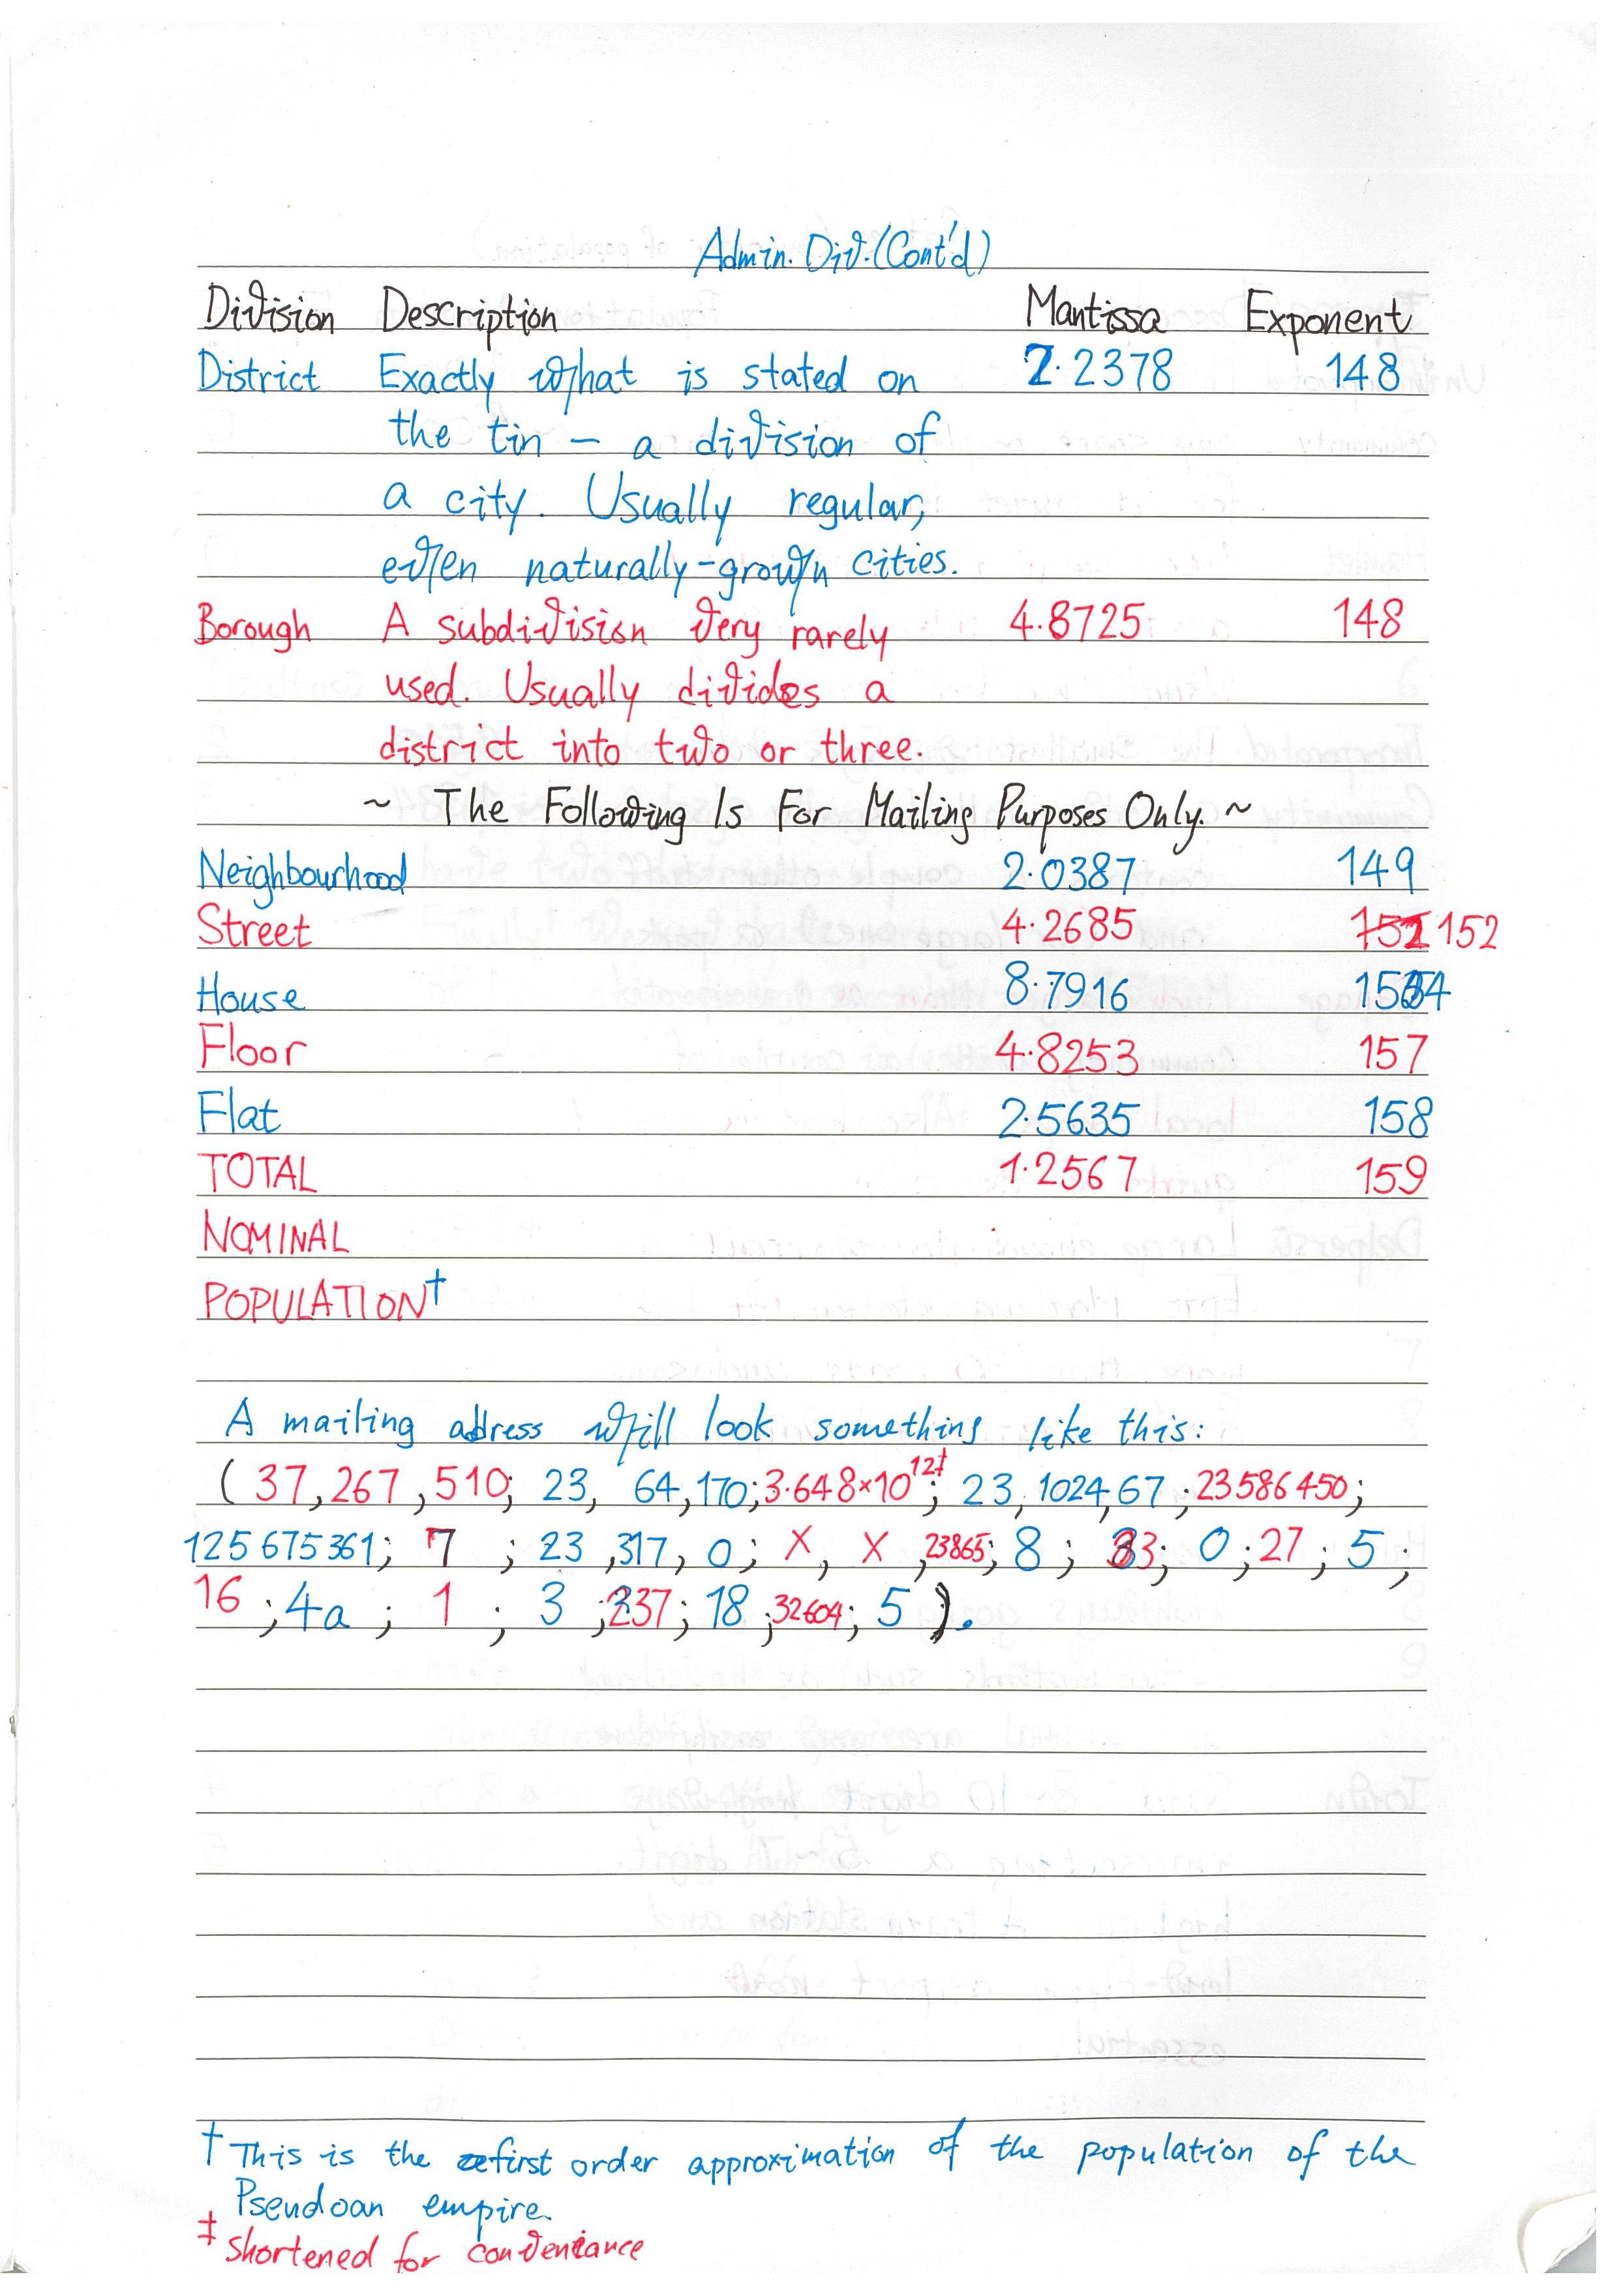 Admin. Div. (Cont'd)
Division Description Mantissa Exponent
District Exactly what is stated on 2.2378 148
the tin – a division of
a city. Usually regular,
even naturally-grown cities.
Borough A subdivision very rarely 4.8725 148
used. Usually divides a
district into two or three.
~ The Following Is For Mailing Purposes Only. ~
Neighbourhood 2.0387 149
Street 4.2685 152
House 8.7916 154
Floor 4.8253 157
Flat 2.5635 158
TOTAL 1.2567 159
NOMINAL
POPULATION†
A mailing address will look something like this:
(37,267,510; 23, 64,170; 3.648×10¹²‡; 23,1024,67; 23586450;
125675361; 7; 23,317,0; X, X, 23865; 8; 33; 0; 27; 5;
16; 4a; 1; 3; 237; 18; 32604; 5).
† This is the first order approximation of the population of the
Pseudoan empire.
‡ shortened for conveniance